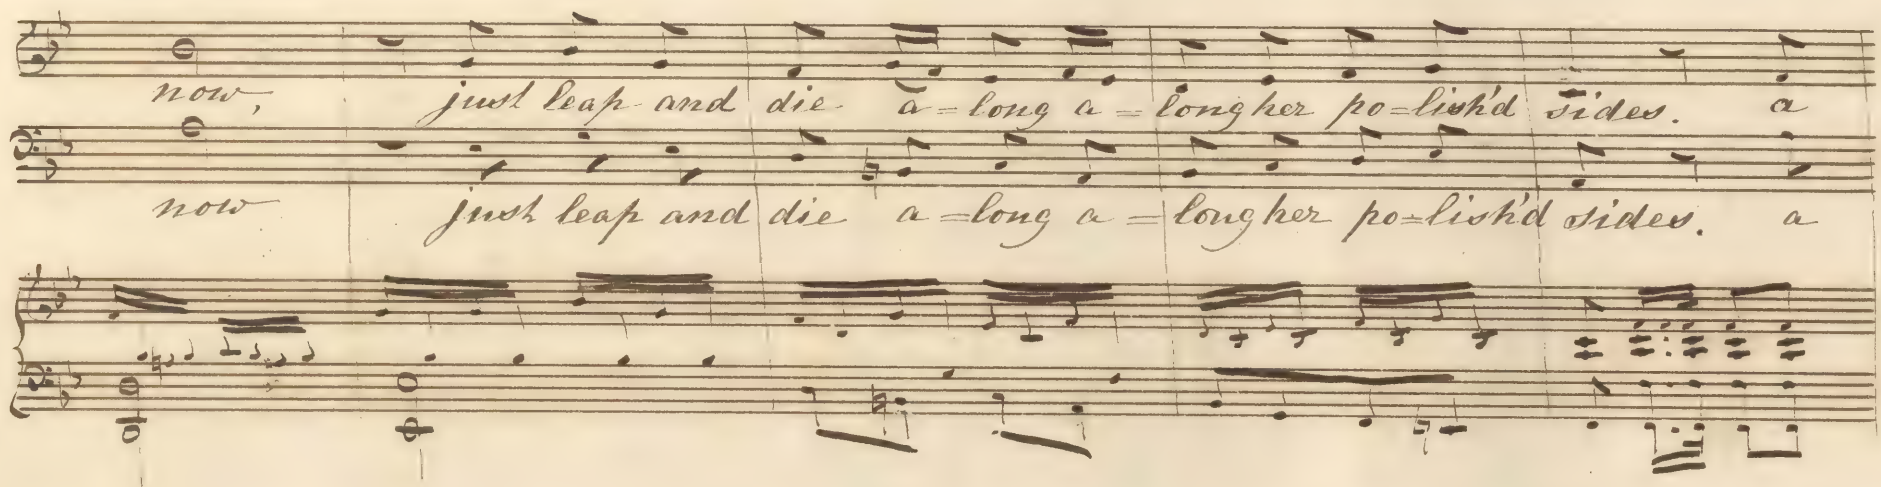 now, just leap and die a=long a=long her po=lish'd sides. a
now just leap and die a=long a=long her po=lish'd sides. a